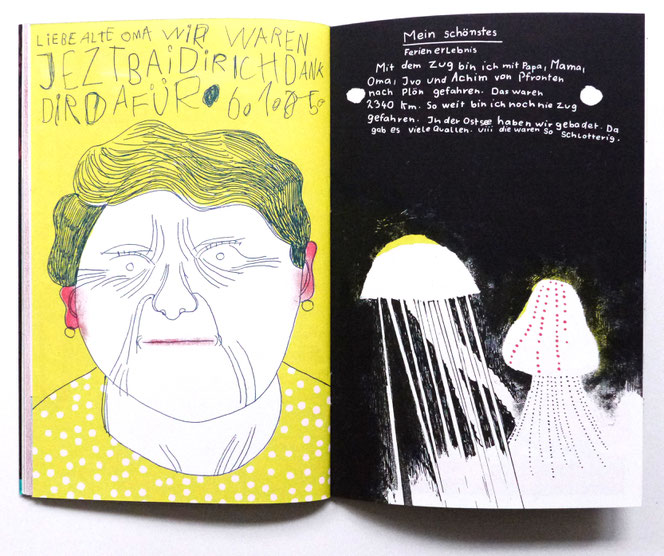 LIEBE ALTE OMA WIR WAREN
JEZT BAI DIR ICH DANK
DIR DAFÜR
Mein schönstes
Ferienerlebnis
Mit dem Zug bin ich mit Papa, Mama,
Oma, Ivo und Achim von Pfronten
nach Plön gefahren. Das waren
2340 km. So weit bin ich noch nie Zug
gefahren. In der Ostsee haben wir gebadet. Da
gab es viele Quallen. uiii die waren so Schlotterig.